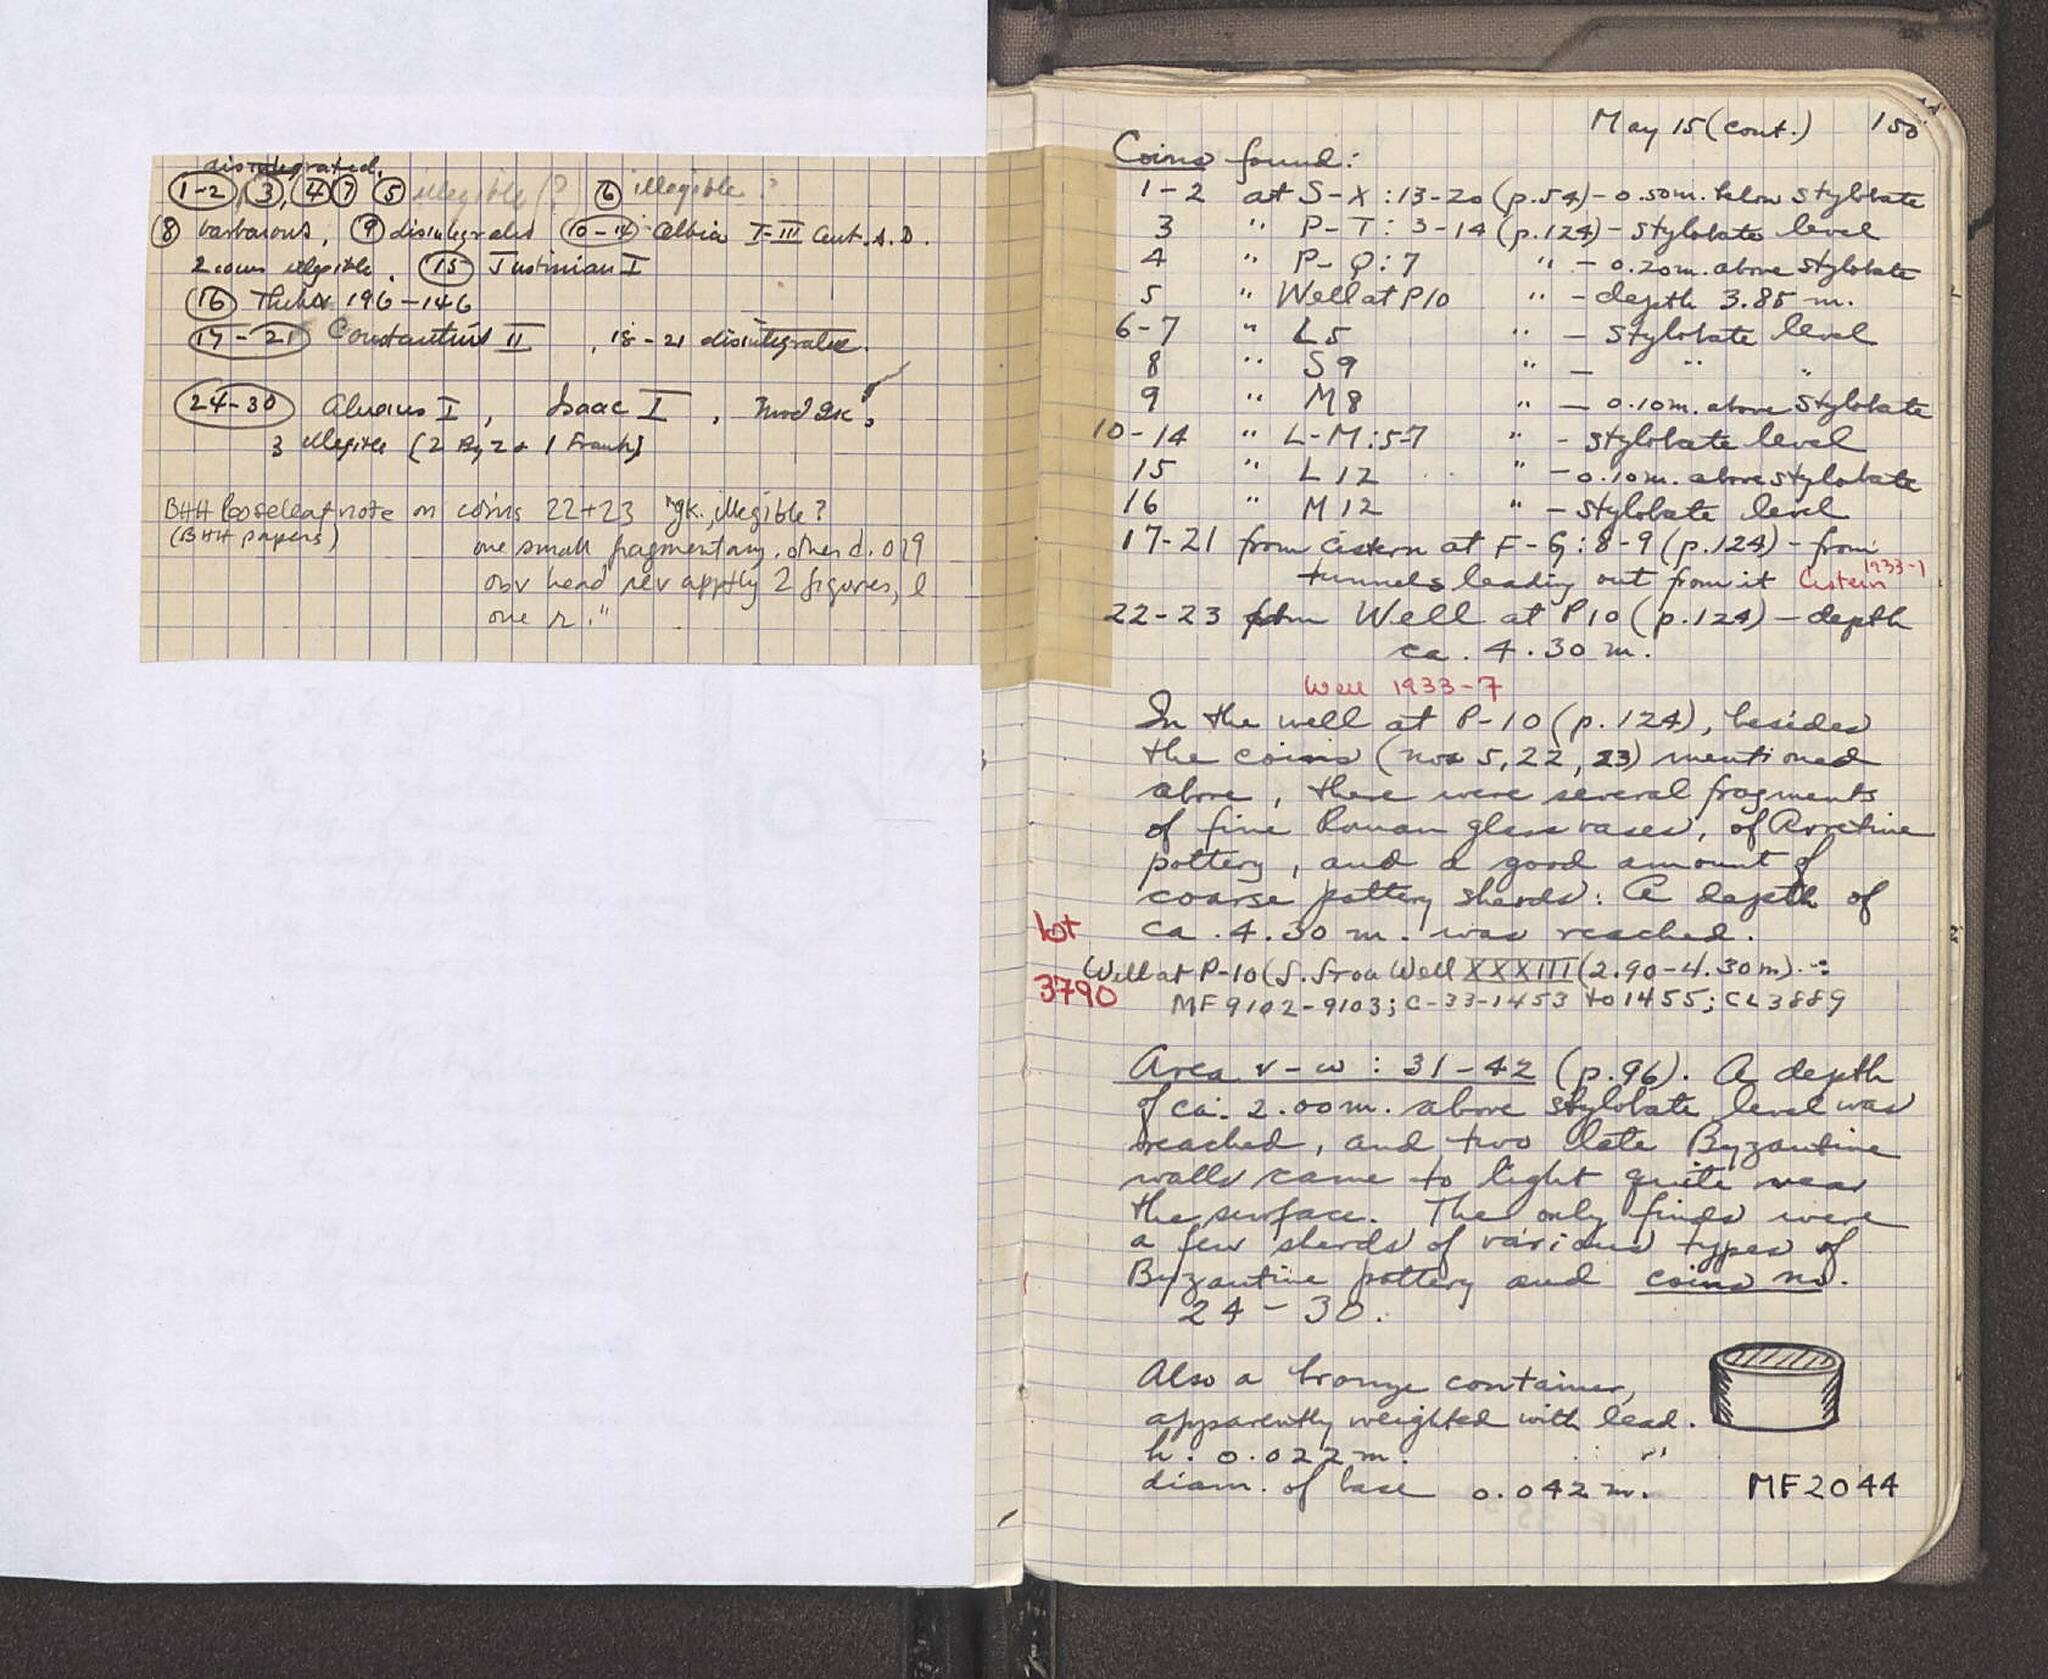 disintegrated.
1-2, 3, 4 7 5 illegible? 6 illegible?
8 barbarous, 9 disintegrated 10-14 Albia I-III Cent. A.D.
2 coins illegible. 15 Justinian I
16 196-146
17-21 Constantius II, 18-21 disintegrated.
24-30 I, Isaac I, Mod Gk.
3 illegible (2 Byz + 1 Frank)
BHH looseleaf note on coins 22+23 "gk., illegible?
(BHH papers) one small fragmentary. other d. 019
obv head rev apptly 2 figures, l
one r."
May 15 (cont.) 150
Coins found:
1-2 at S-X:13-20 (p.54) - 0.50m. below stylobate
3 " P-T: 3-14 (p.124) - stylobate level
4 " P-Q:7 " - 0.20m. above stylobate
5 " Well at P10 " - depth 3.85 m.
6-7 " L5 " - stylobate level
8 " S9 " - " "
9 " M8 " - 0.10m. above stylobate
10-14 " L-M:5-7 " - stylobate level
15 " L12 " - 0.10m. above stylobate
16 " M12 " - stylobate level
17-21 from cistern at F-G:8-9 (p.124) - from
tunnels leading out from it Cistern 1933-1
22-23 from Well at P10 (p.124) - depth
ca. 4.30 m.
Well 1933-7
In the well at P-10 (p.124), besides
the coins (nos 5, 22, 23) mentioned
above, there were several fragments
of fine Roman glass vases, of Arretine
pottery, and a good amount of
coarse pottery sherds. A depth of
ca. 4.30 m. was reached.
lot
3790
Well at P-10 (S. Stoa Well XXXIII (2.90-4.30m).:
MF 9102-9103; C-33-1453 to 1455; CL3889
Area v-w : 31-42 (p.96). A depth
of ca. 2.00m. above stylobate level was
reached, and two late Byzantine
walls came to light quite near
the surface. The only finds were
a few sherds of various types of
Byzantine pottery and coins no.
24-30.
Also a bronze container,
apparently weighted with lead.
h. 0.022 m.
diam. of base 0.042 m. MF2044